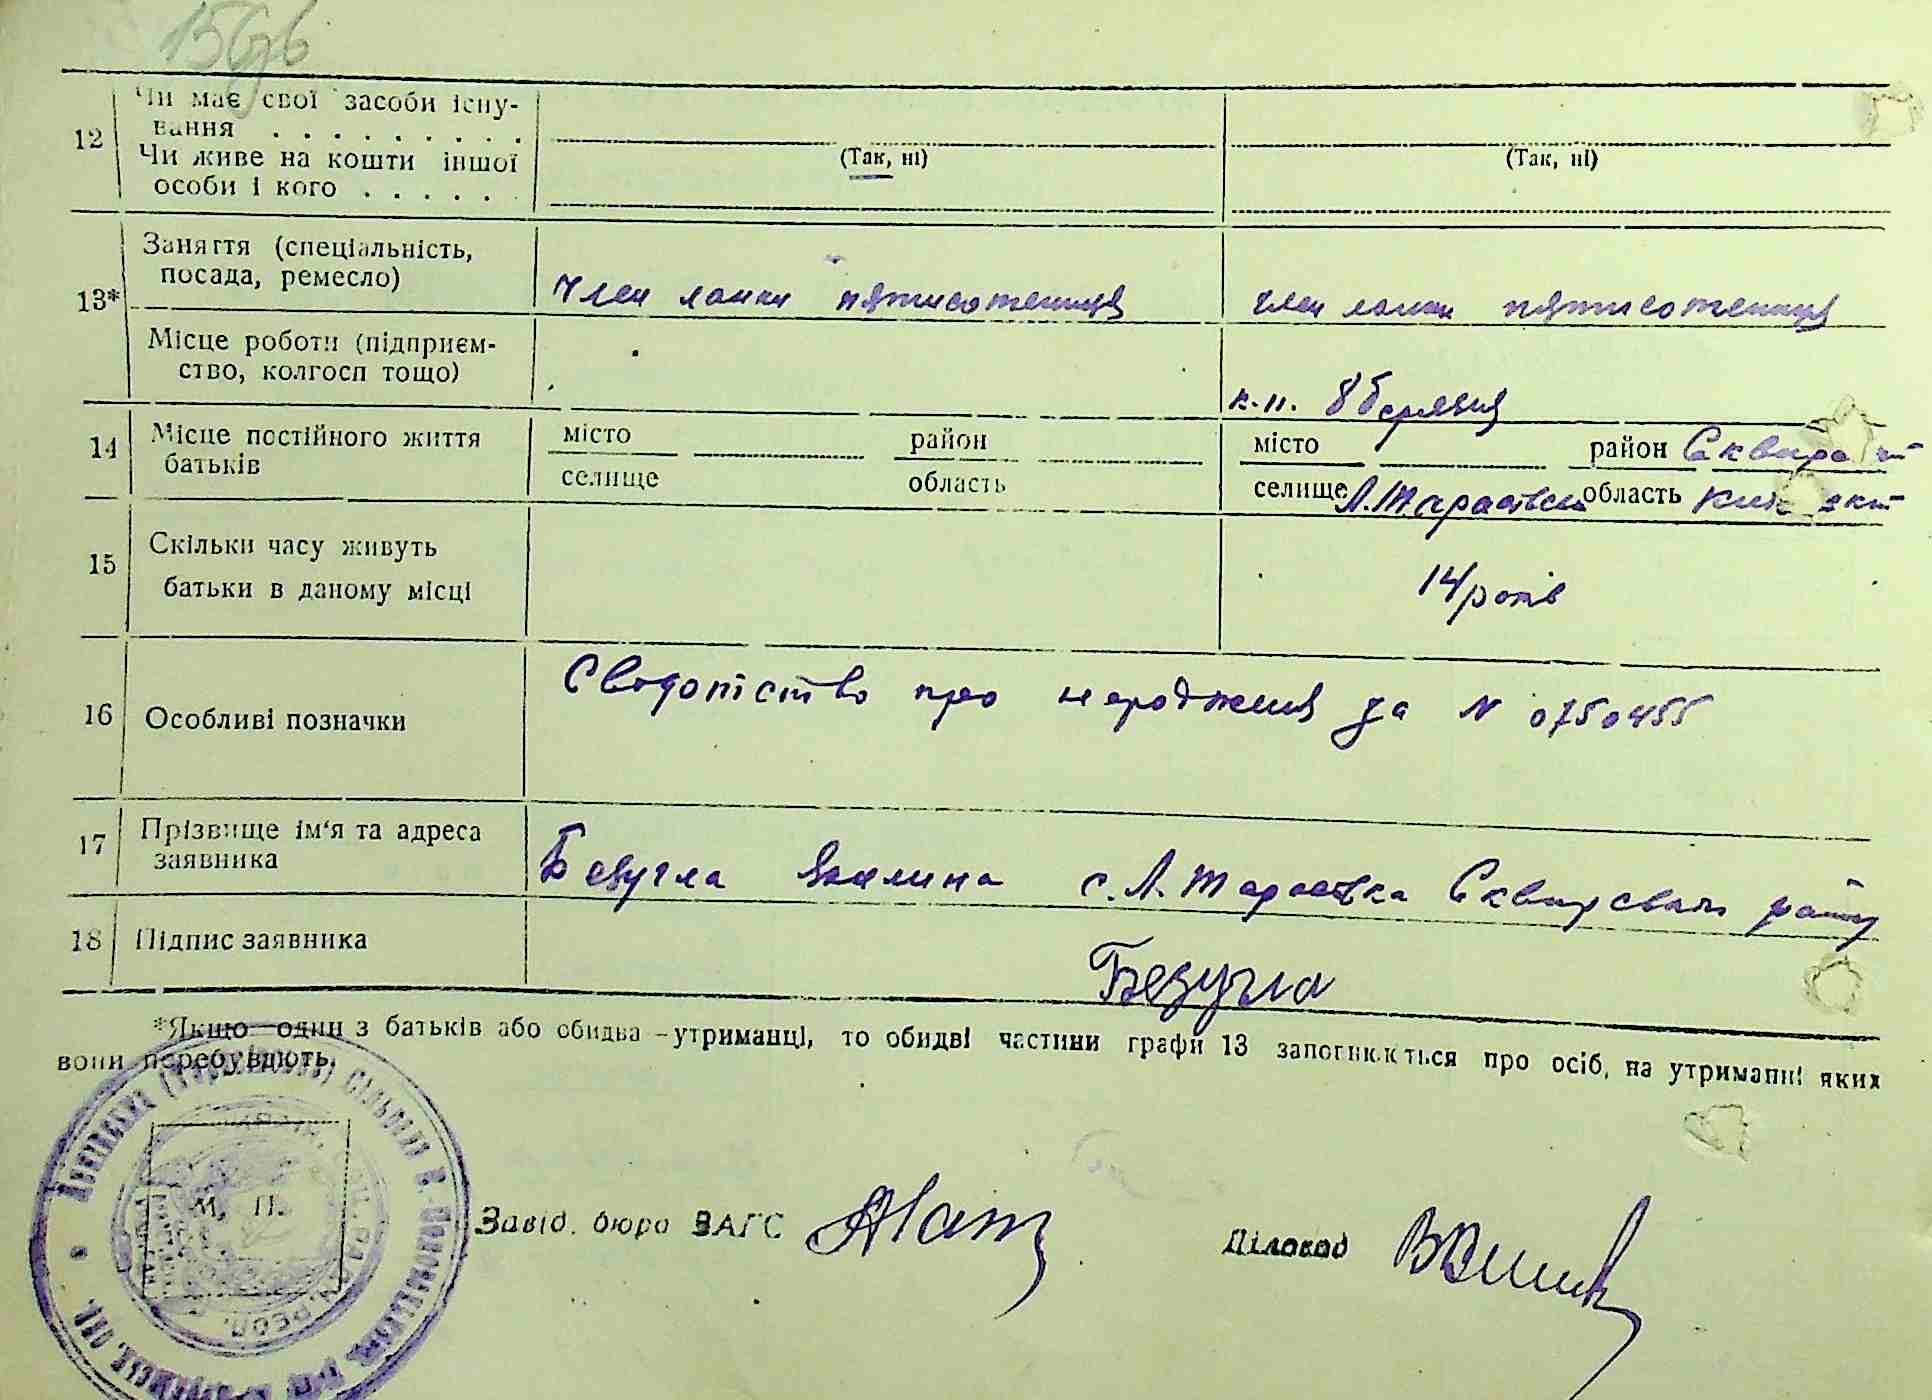 12 Чи має свої засоби існу-
вання . . . . . . . . .
Чи живе на кошти іншої
особи і кого . . . . .
(Так, ні) (Так, ні)
13* Заняття (спеціальність,
посада, ремесло)
Член ланки пятисотениця член ланки пятисотениця
Місце роботи (підприєм-
ство, колгосп тощо)
к.п. 8 березня
14 Місце постійного життя
батьків
місто район місто район
селище область селище Л. Тарасівка область
15 Скільки часу живуть
батьки в даному місці
14 років
16 Особливі позначки
Сводотство про народження за N 0750455
17 Прізвище ім'я та адреса
заявника
Безугла с. Л. Тарасівка Сквирського району
18 Підпис заявника
Безугла
*Якщо один з батьків або обидва - утриманці, то обидві частини графи 13 заповнюються про осіб, на утриманні яких
вони перебувають.
М. П.
Завід. бюро ЗАГС
Діловод